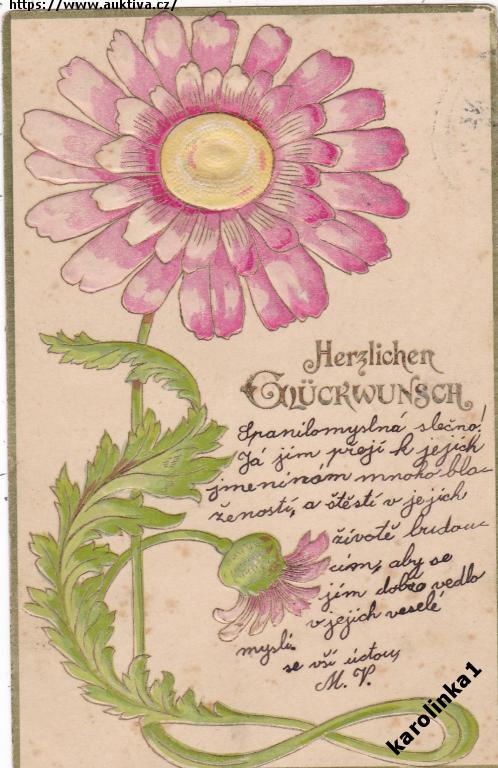 https://www.auktiva.cz/
Herzlichen
GLÜCKWUNSCH
Spanilomyslná slečno!
Já jim přejí k jejich
jmeninám mnoho bla-
ženosti, a štěstí v jejich
životě budou-
cím, aby se
jim dobře vedlo
v jejich veselé
mysli.
se vší úctou,
M. V.
karolinka1